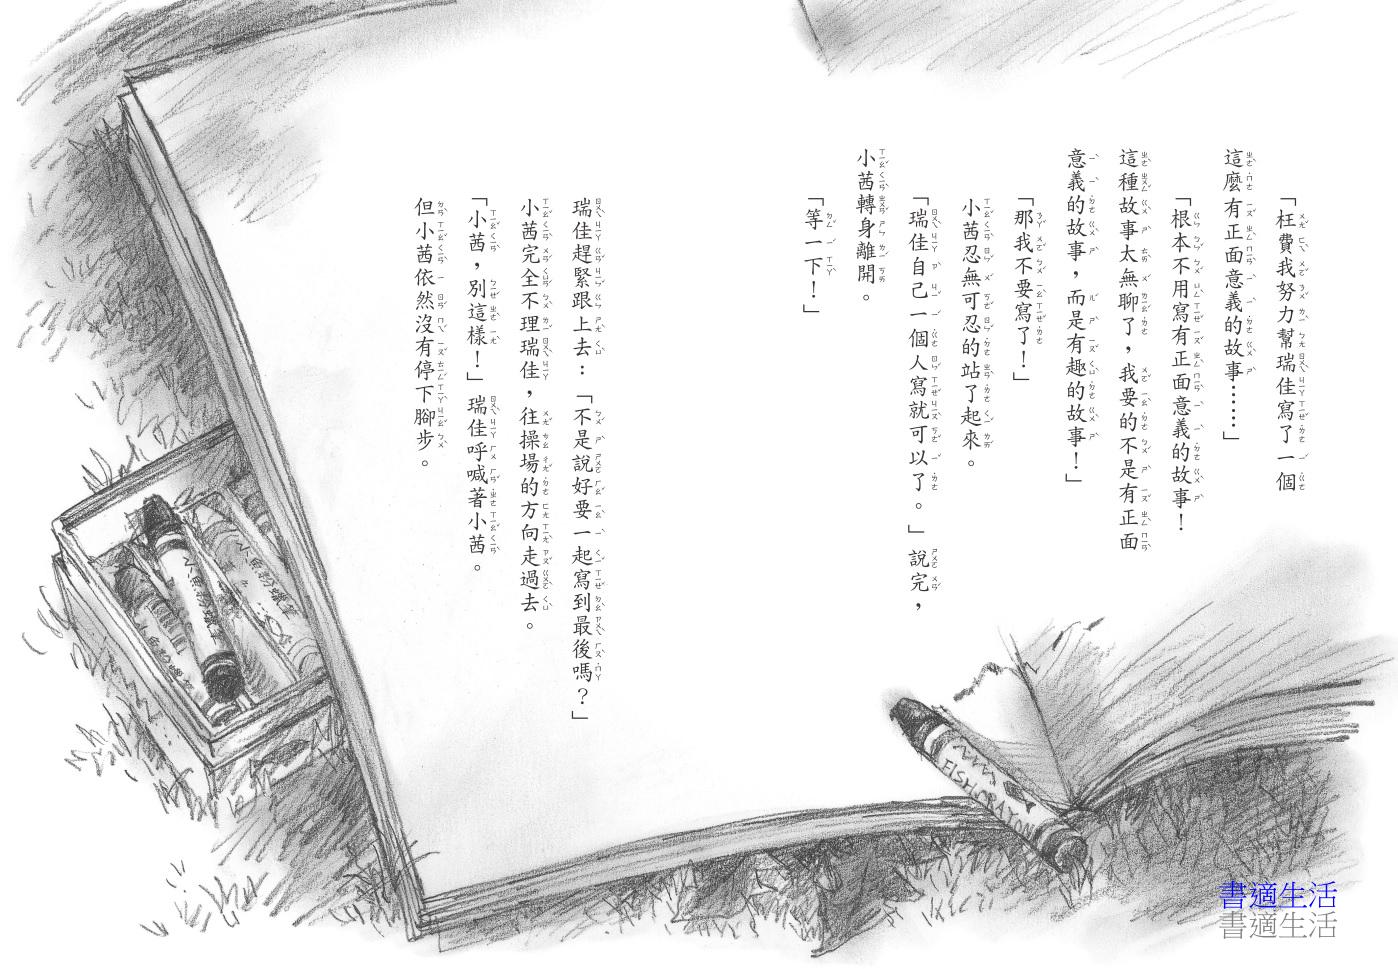 「枉費我努力幫瑞佳寫了一個
這麼有正面意義的故事……」
「根本不用寫有正面意義的故事！
這種故事太無聊了，我要的不是有正面
意義的故事，而是有趣的故事！」
「那我不要寫了！」
小茜忍無可忍的站了起來。
「瑞佳自己一個人寫就可以了。」說完，
小茜轉身離開。
「等一下！」
瑞佳趕緊跟上去：「不是說好要一起寫到最後嗎？」
小茜完全不理瑞佳，往操場的方向走過去。
「小茜，別這樣！」瑞佳呼喊著小茜。
但小茜依然沒有停下腳步。
FISH CRAYON
書適生活
書適生活